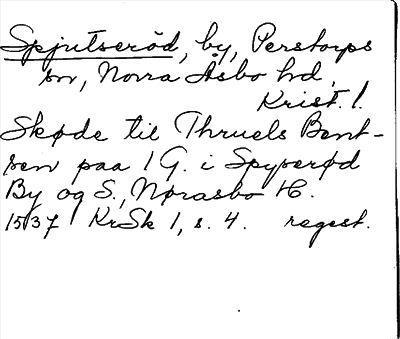 Spjutseröd, by, Perstorps
sn, Norra Åsbo hd,
Krist. l.
Skøde til Thruels Bent-
sen paa 1 G. i Spyserød
By og S., Nørasbo H.
1537 KrSk 1, s. 4. regest.